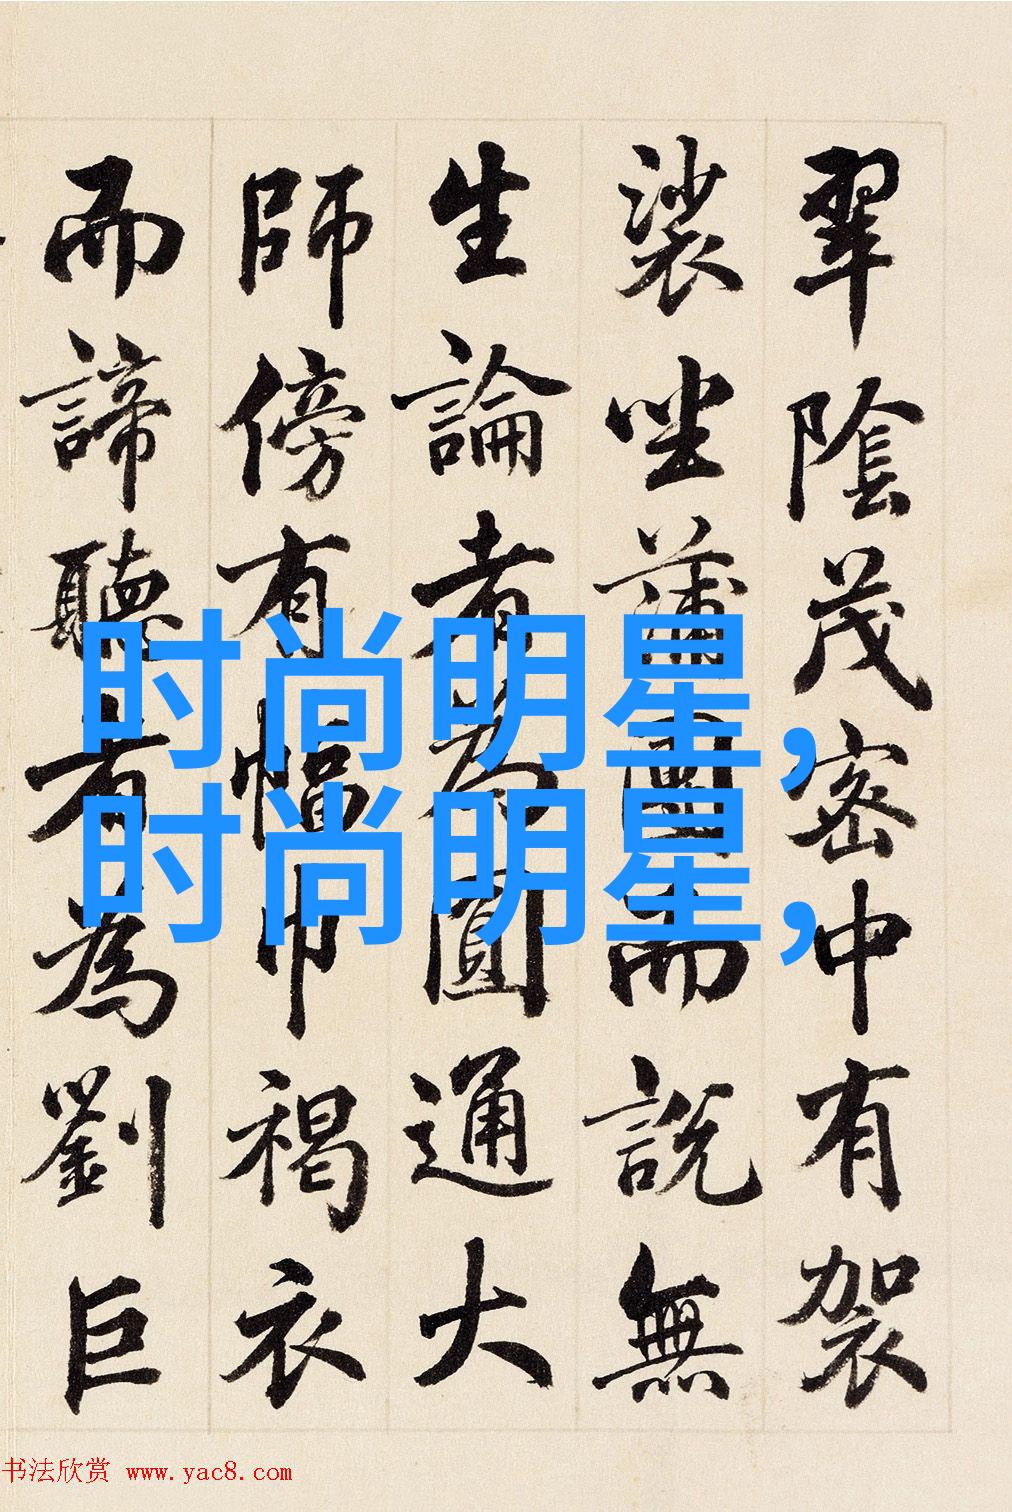 翠陰茂密中有袈
裟坐蒲團而說無
生論者為圓通大
師傍有幅巾褐衣
而諦聽者為劉巨
时尚明星,
时尚明星,
书法欣赏 www.yac8.com